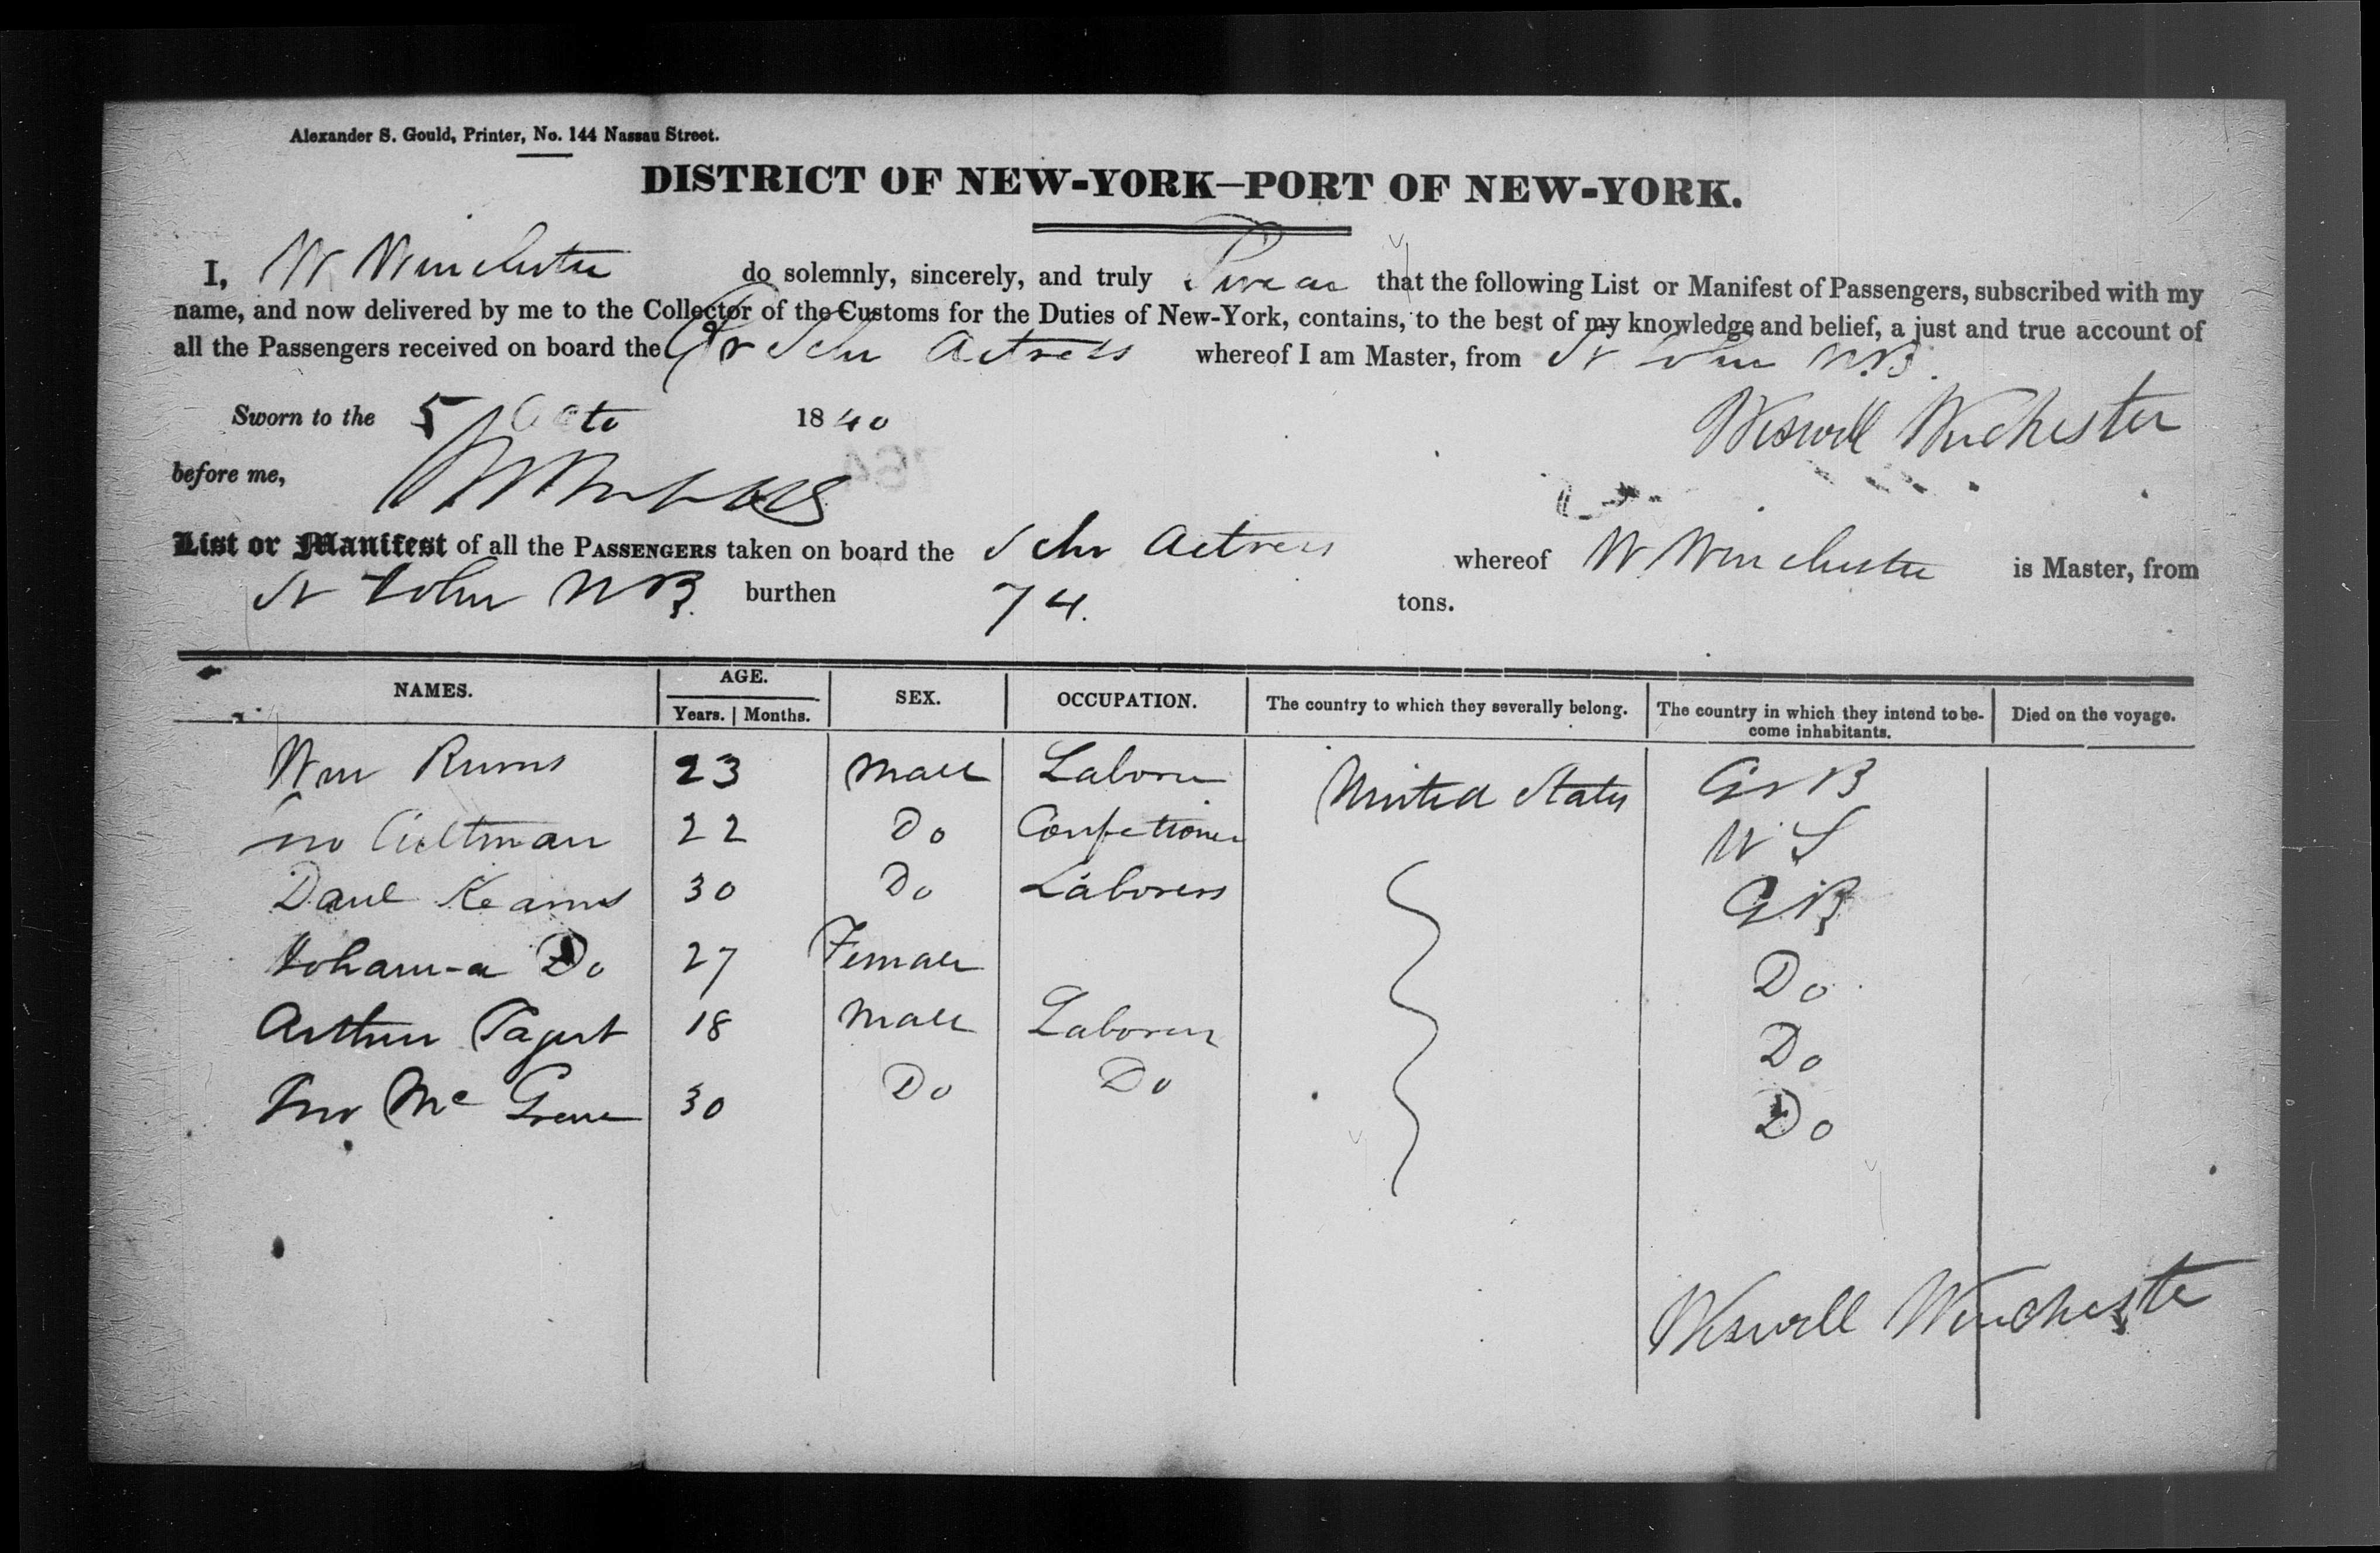 Alexander S. Gould, Printer, No. 144 Nassau Street.
DISTRICT OF NEW-YORK–PORT OF NEW-YORK.
I, W Winchester do solemnly, sincerely, and truly Swear that the following List or Manifest of Passengers, subscribed with my
name, and now delivered by me to the Collector of the Customs for the Duties of New-York, contains, to the best of my knowledge and belief, a just and true account of
all the Passengers received on board the Br Schr Actress whereof I am Master, from St John N.B.
Sworn to the 5 Octo 1840
Weswell Winchester
before me,
List or Manifest of all the PASSENGERS taken on board the Schr Actress whereof W Winchester is Master, from
St John N B. burthen 74. tons.
NAMES. AGE. SEX. OCCUPATION. The country to which they severally belong. The country in which they intend to be- Died on the voyage.
Years. Months. come inhabitants.
Wm 23 Male Laborer United States Gr B
Jno 22 Do Confectioner U S
Danl Kearns 30 Do Laborers G B
Johanna Do 27 Female Do
Arthur 18 Male Laborer Do
Jno Mc 30 Do Do Do
Weswell Winchester